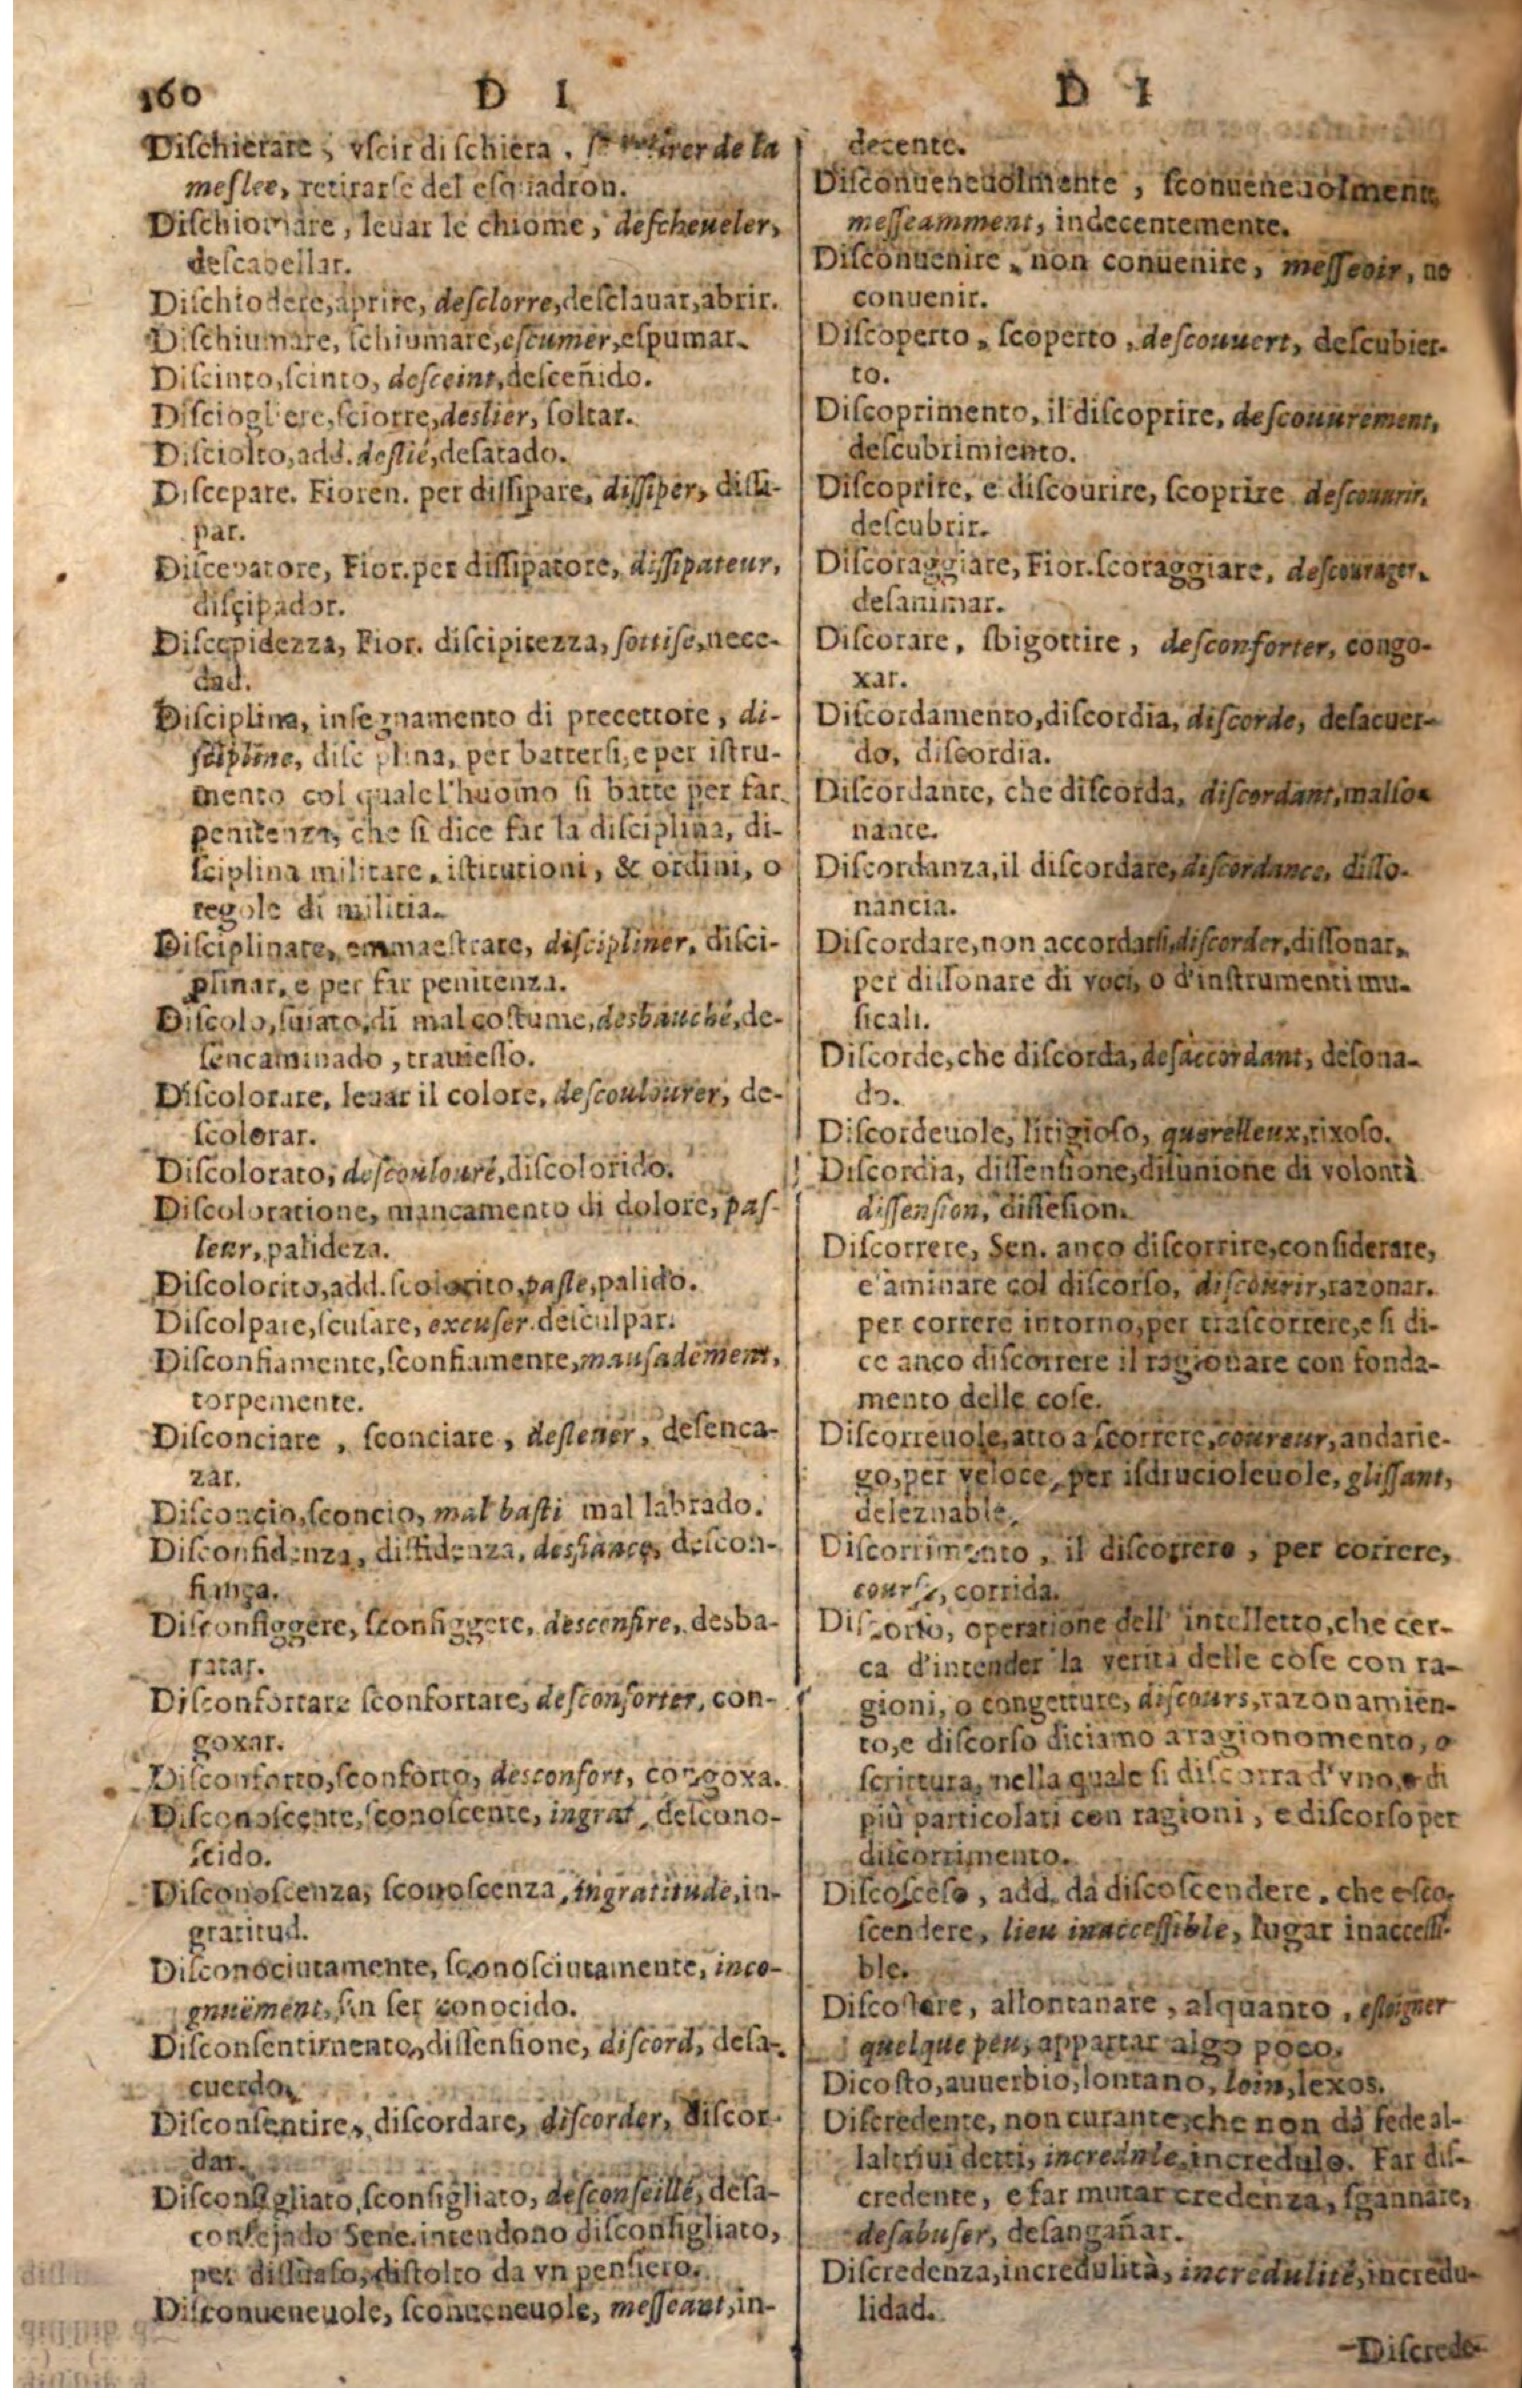 160 D I
Diſchierare, vſcir di ſchiera. ſe retirer de la
meſlee, retirarſe del eſquadron.
Diſchiomare, leuar le chiome, deſcheueler,
deſcabellar.
Diſchiodere, aprire, deſclorre, deſclauar, abrir.
Diſchiumare, ſchiumare, eſcumer, eſpumar.
Diſcinto, ſcinto, deſceint, deſceñido.
Diſciogliere, ſciorre, deslier, ſoltar.
Diſciolto, add. deſlié, deſatado.
Diſcepare. Fioren. per diſſipare, diſſiper, diſſi-
par.
Diſcepatore, Fior. per diſſipatore, diſſipateur,
diſçipador.
Diſcepidezza, Fior. diſcipitezza, ſottiſe, nece-
dad.
Diſciplina, inſegnamento di precettore, di-
ſcipline, diſciplina, per batterſi, e per iſtru-
mento col quale l'huomo ſi batte per far
penitenza, che ſi dice far la diſciplina, di-
ſciplina militare, iſtitutioni, & ordini, o
regole di militia.
Diſciplinare, emmaeſtrare, diſcipliner, diſci-
plinar, e per far penitenza.
Diſcolo, ſuiato, di mal coſtume, desbauché, de-
ſencaminado, trauieſſo.
Diſcolorare, leuar il colore, deſcoulourer, de-
ſcolorar.
Diſcolorato, deſcoulouré, diſcolorido.
Diſcoloratione, mancamento di dolore, paſ-
leur, palideza.
Diſcolorito, add. ſcolorito, paſle, palido.
Diſcolpare, ſcuſare, excuſer. deſculpar.
Diſconfiamente, ſconfiamente, mauſadement,
torpemente.
Diſconciare, ſconciare, deſtener, deſenca-
zar.
Diſconcio, ſconcio, mal baſti mal labrado.
Diſconfidenza, diffidenza, desfiance, deſcon-
fiança.
Diſconfiggere, ſconfiggere, desconfire, desba-
ratar.
Diſconfortare ſconfortare, deſconforter, con-
goxar.
Diſconforto, ſconforto, desconfort, congoxa.
Diſconoſcente, ſconoſcente, ingrat, deſcono-
ſcido.
Diſconoſcenza, ſconoſcenza, ingratitude, in-
gratitud.
Diſconociutamente, ſconoſciutamente, inco-
gnuëment, ſin ſer conocido.
Diſconſentimento, diſſenſione, diſcord, deſa-
cuerdo.
Diſconſentire, diſcordare, diſcorder, diſcor-
dar.
Diſconſigliato, ſconſigliato, deſconſeillé, deſa-
conſejado Sene. intendono diſconſigliato,
per diſſuaſo, diſtolto da vn penſiero.
Diſconueneuole, ſconueneuole, meſſeant, in-
D I
decente.
Diſconueneuolmente, ſconueneuolmente,
meſſeamment, indecentemente.
Diſconuenire, non conuenire, meſſeoir, no
conuenir.
Diſcoperto, ſcoperto, deſcouuert, deſcubier-
to.
Diſcoprimento, il diſcoprire, deſcouurement,
deſcubrimiento.
Diſcoprire, e diſcourire, ſcoprire deſcouurir,
deſcubrir.
Diſcoraggiare, Fior. ſcoraggiare, deſcourager,
deſanimar.
Diſcorare, ſbigottire, deſconforter, congo-
xar.
Diſcordamento, diſcordia, diſcorde, deſacuer-
do, diſcordia.
Diſcordante, che diſcorda, diſcordant, malſo-
nante.
Diſcordanza, il diſcordare, diſcordance, diſſo-
nancia.
Diſcordare, non accordarſi, diſcorder, diſſonar,
per diſſonare di voci, o d'inſtrumenti mu-
ſicali.
Diſcorde, che diſcorda, deſaccordant, deſona-
do.
Diſcordeuole, litigioſo, querelleux, rixoſo.
Diſcordia, diſſenſione, diſunione di volontà
diſſenſion, diſſeſion.
Diſcorrere, Sen. anco diſcorrire, conſiderare,
eſaminare col diſcorſo, diſcourir, razonar.
per correre intorno, per traſcorrere, e ſi di-
ce anco diſcorrere il ragionare con fonda-
mento delle coſe.
Diſcorreuole, atto a ſcorrere, coureur, andarie-
go, per veloce, per iſdrucioleuole, gliſſant,
deleznable.
Diſcorrimento, il diſcorrere, per correre,
courſe, corrida.
Diſcorſo, operatione dell'intelletto, che cer-
ca d'intender la verità delle coſe con ra-
gioni, o congetture, diſcours, razonamien-
to, e diſcorſo diciamo a ragionomento, o
ſcrittura, nella quale ſi diſcorra d'vno, o di
più particolari con ragioni, e diſcorſo per
diſcorrimento.
Diſcoſceſo, add. da diſcoſcendere, che e ſco-
ſcendere, lieu inacceſſible, lugar inacceſſi-
ble.
Diſcoſtare, allontanare, alquanto, eſloigner
quelque peu, appartar algo poco.
Dicoſto, auuerbio, lontano, loin, lexos.
Diſcredente, non curante, che non dà fede al-
laltriui detti, incredule, incredulo. Far diſ-
credente, e far mutar credenza, ſgannare,
deſabuſer, deſangañar.
Diſcredenza, incredulità, incredulité, incredu-
lidad.
Diſcrede-